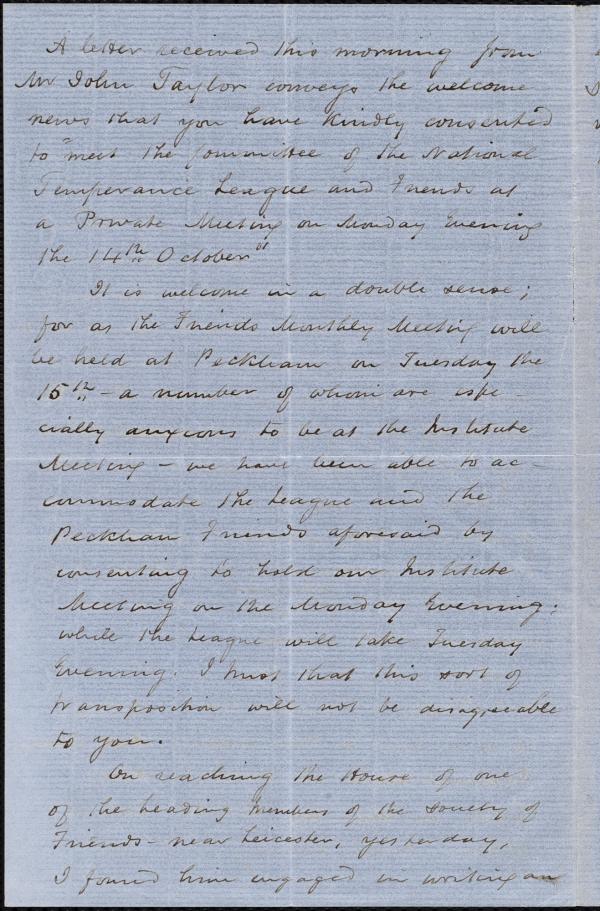 A letter received this morning from
Mr John Taylor conveys the welcome
news that you have kindly consented
to "meet the Committee of the National
Temperance League and Friends at
a Private Meeting on Monday Evening
the 14th October"
It is welcome in a double sense;
for as the Friends Monthly Meeting will
be held at Peckham on Tuesday the
15th - a number of whom are espe-
cially anxious to be at the Institute
Meeting - we have been able to ac-
commodate the League and the
Peckham Friends aforesaid by
consenting to hold our Institute
Meeting on the Monday Evening:
while the League will take Tuesday
Evening. I trust that this sort of
transposition will not be disagreeable
to you.
On reaching the House of one
of the leading members of the Society of
Friends - near Leicester, yesterday,
I found him engaged in writing an